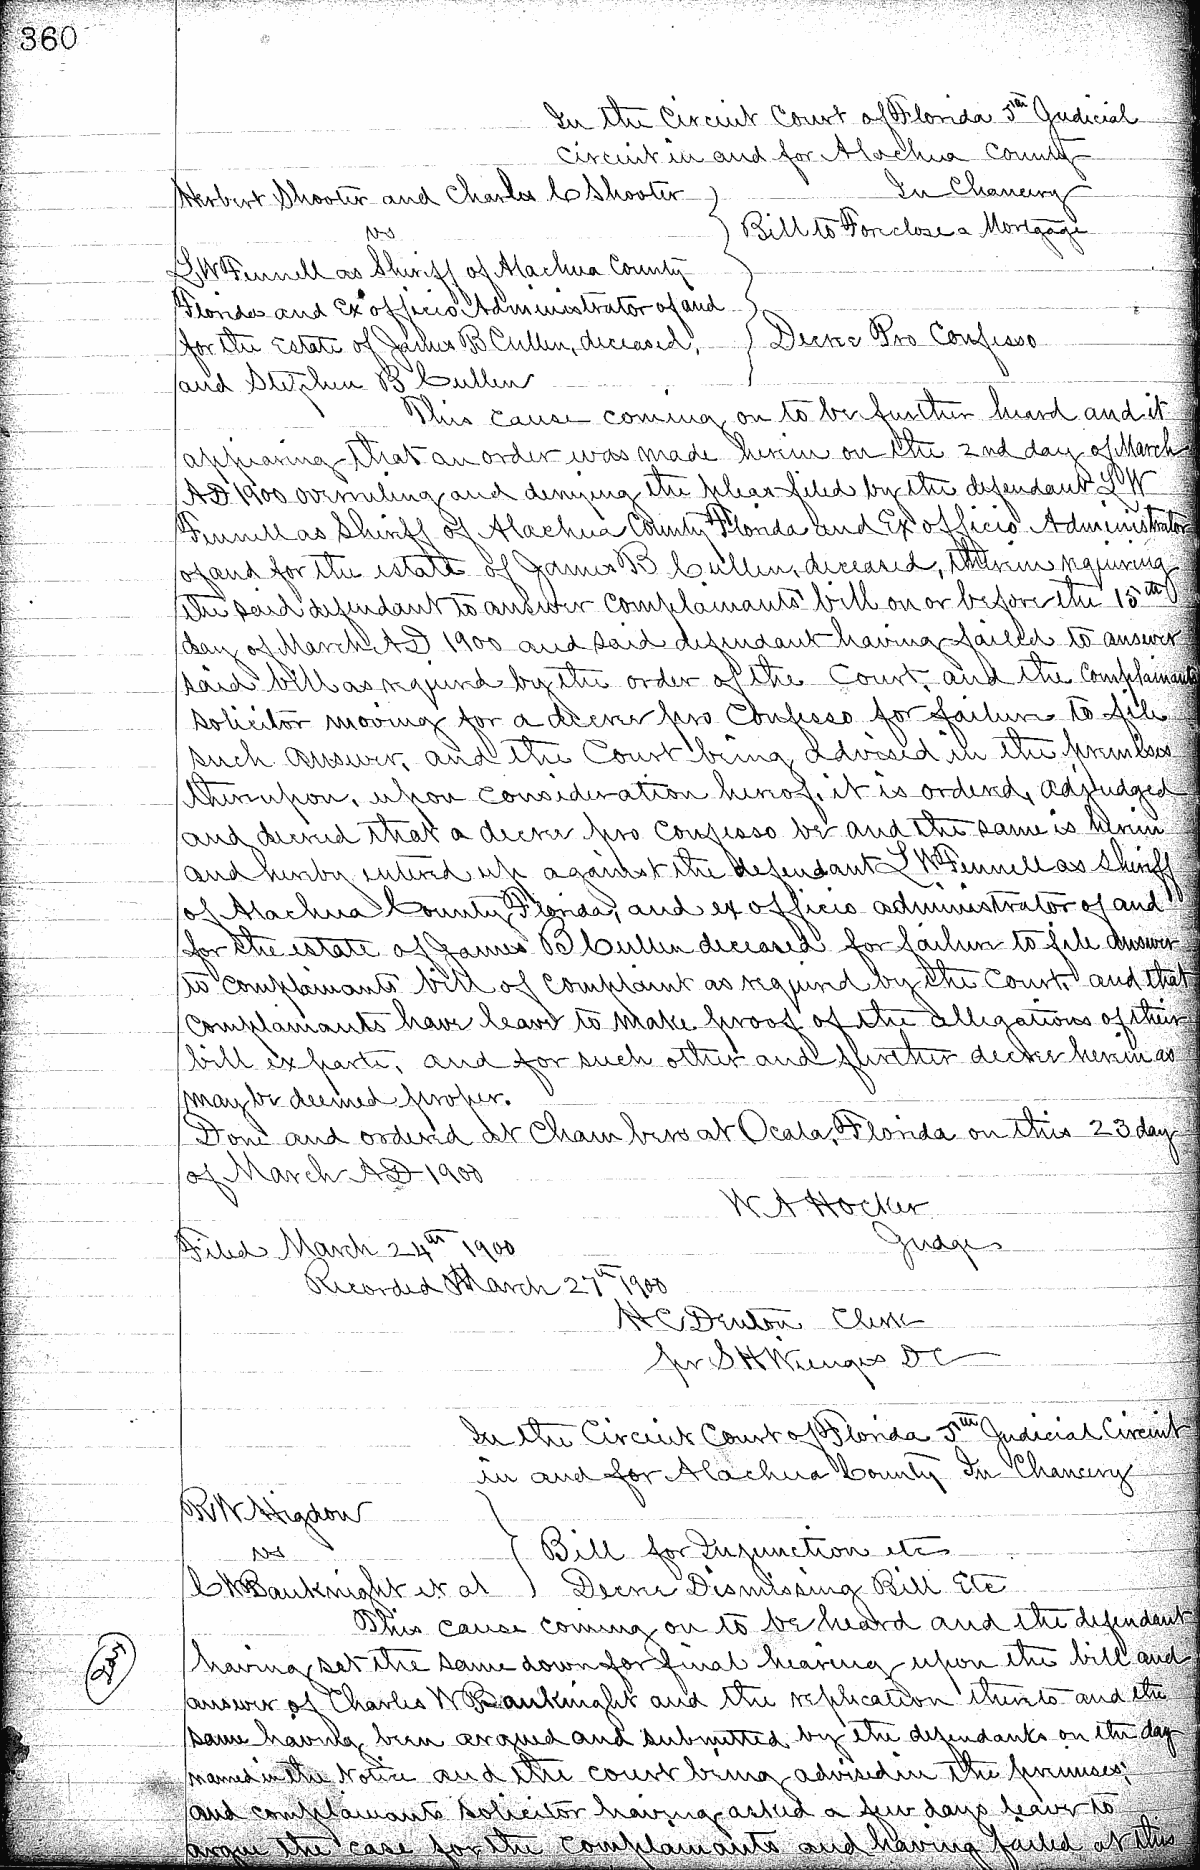 360
In the Circuit Court of Florida 5th Judicial
Circuit in and for Alachua County
Herbert Shooter and Charles C Shooter
In Chancery
vs
Bill to Foreclose a Mortgage
L W Fennell as Sheriff of Alachua County
Florida and Ex officio Administrator of and
for the Estate of James B Cullen, deceased,
Decree Pro Confesso
and Stephen B Cullen
This cause coming on to be further heard and it
appearing that an order was made herein on the 2nd day of March
AD 1900 overruling and denying the pleas filed by the defendant L W
Fennell as Sheriff of Alachua County Florida and Ex officio Administrator
of and for the estate of James B Cullen, deceased, therein requiring
the said defendant to answer complainants' bill on or before the 15th
day of March AD 1900 and said defendant having failed to answer
said bill as required by the order of the Court, and the complainants
solicitor moving for a decree pro Confesso for failure to file
such answer, and the Court being advised in the premises
thereupon, upon consideration hereof, it is ordered, adjudged
and decreed that a decree pro confesso be and the same is herein
and hereby entered up against the defendant L W Fennell as Sheriff
of Alachua County, Florida, and ex officio administrator of and
for the estate of James B Cullen deceased for failure to file answer
to complainants' bill of complaint as required by the Court, and that
complainants have leave to make proof of the allegations of their
bill ex parte, and for such other and further decree herein as
may be deemed proper.
Done and ordered at Chambers at Ocala, Florida on this 23 day
of March AD 1900
W A Hocker
Judge
Filed March 24th 1900
Recorded March 27th 1900
H C Denton Clerk
per S H Wienges DC
In the Circuit Court of Florida 5th Judicial Circuit
in and for Alachua County In Chancery
R W Higdon
vs
Bill for Injunction etc
C W Bauknight et al
Decree Dismissing Bill Etc
This cause coming on to be heard and the defendant
having set the same down for final hearing upon the bill and
answer of Charles W Bauknight and the replication thereto and the
same having been argued and submitted by the defendants on the day
named in the Notice and the court being advised in the premises,
and complainants solicitor having asked a few days leave to
argue the case for the complainants and having failed at this